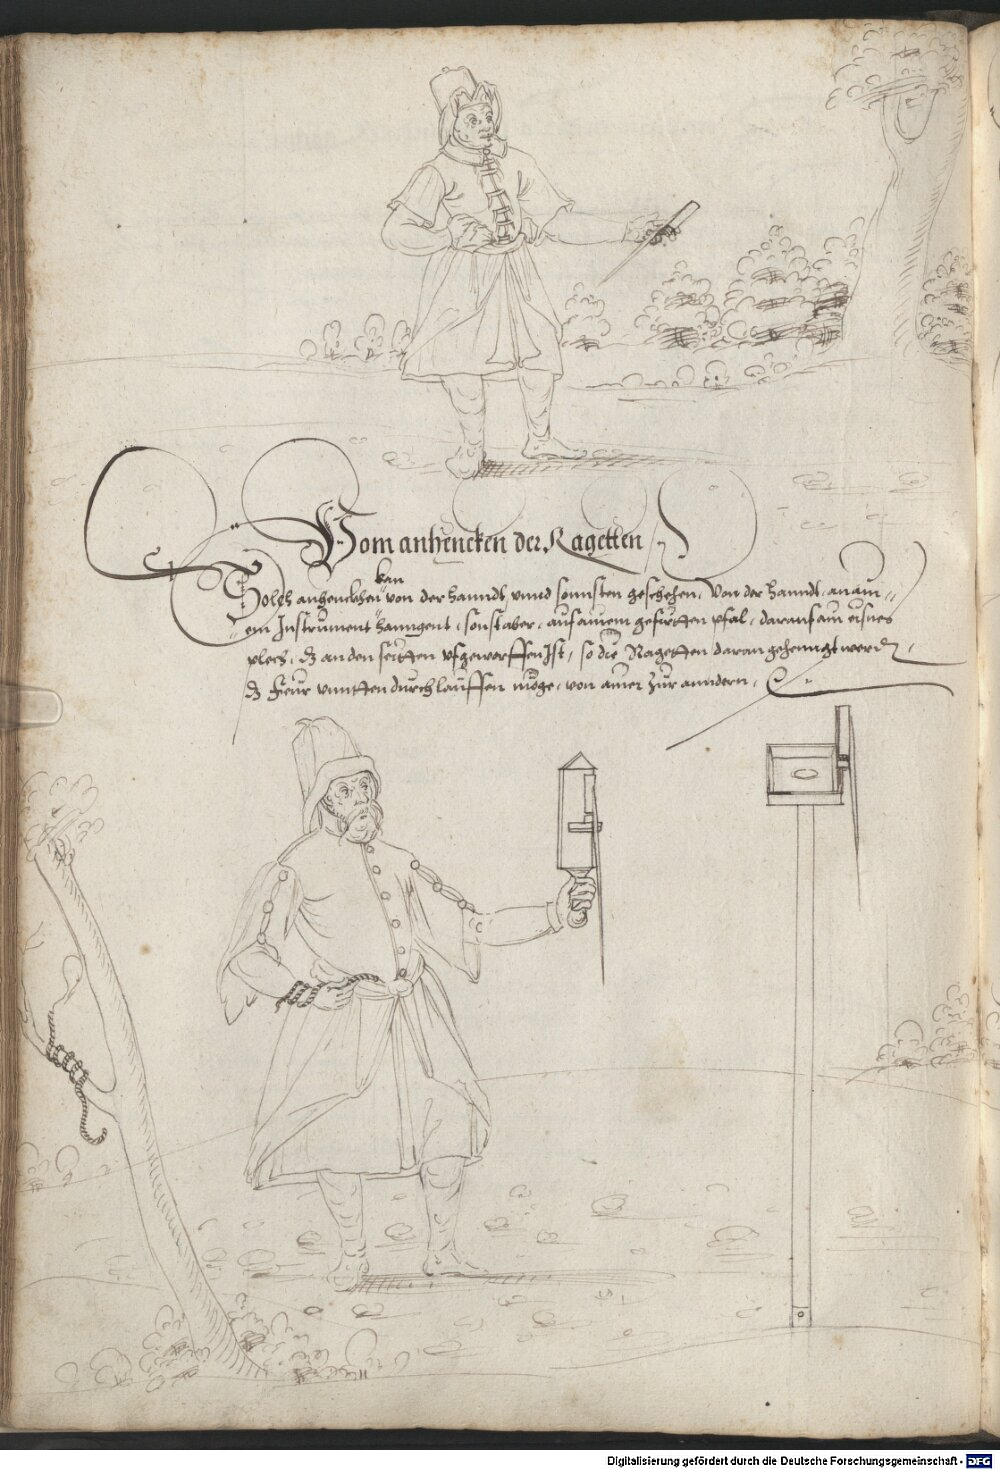 Vom anhencken der Ragetten
Solch anhenckhen kan von der Hanndt, vnnd sonnsten geschehen, Von der Hanndt, an ain
ein Instrument hanngent, sonst aber, auf ainem gefirtten pfal, darauf ain eisnes
plech, dz an den seitten vfgeworffen Ist, so die Ragetten daran gehennckt werden,
dz Feur vnntten durchlauffen möge, von ainer zur anndern,
Digitalisierung gefördert durch die Deutsche Forschungsgemeinschaft - DFG